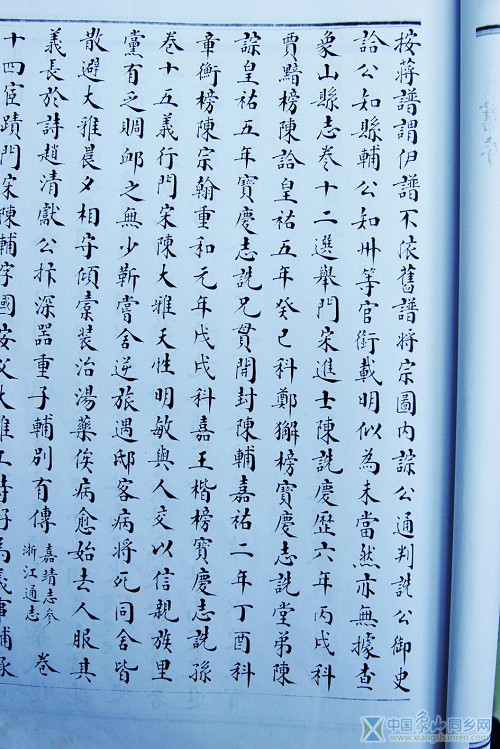 按蔣譜謂伊譜不依舊譜將宗圖內諒公通判詵公御史
詥公知縣輔公知州等官銜載明似為未當然亦無據查
象山縣志卷十二選舉門宋進士陳詵慶歷六年丙戌科
賈黯榜陳詥皇祐五年癸巳科鄭獬榜寶慶志詵堂弟陳
諒皇祐五年寶慶志詵兄貫開封陳輔嘉祐二年丁酉科
章衡榜陳宗翰重和元年戊戌科嘉王楷榜寶慶志詵孫
卷十五義行門宋陳大雅天性明敏與人交以信親族里
黨有乏賙卹之無少靳嘗舍逆旅遇邸客病將死同舍皆
散避大雅晨夕相守傾橐裝治湯藥俟病愈始去人服其
義長於詩趙清獻公抃深器重子輔別有傳 嘉靖志參浙江通志 卷
十四宦蹟門宋陳輔字國安父大雅工詩好為義事輔承
中国象山同乡网
www.xiangshanren.com